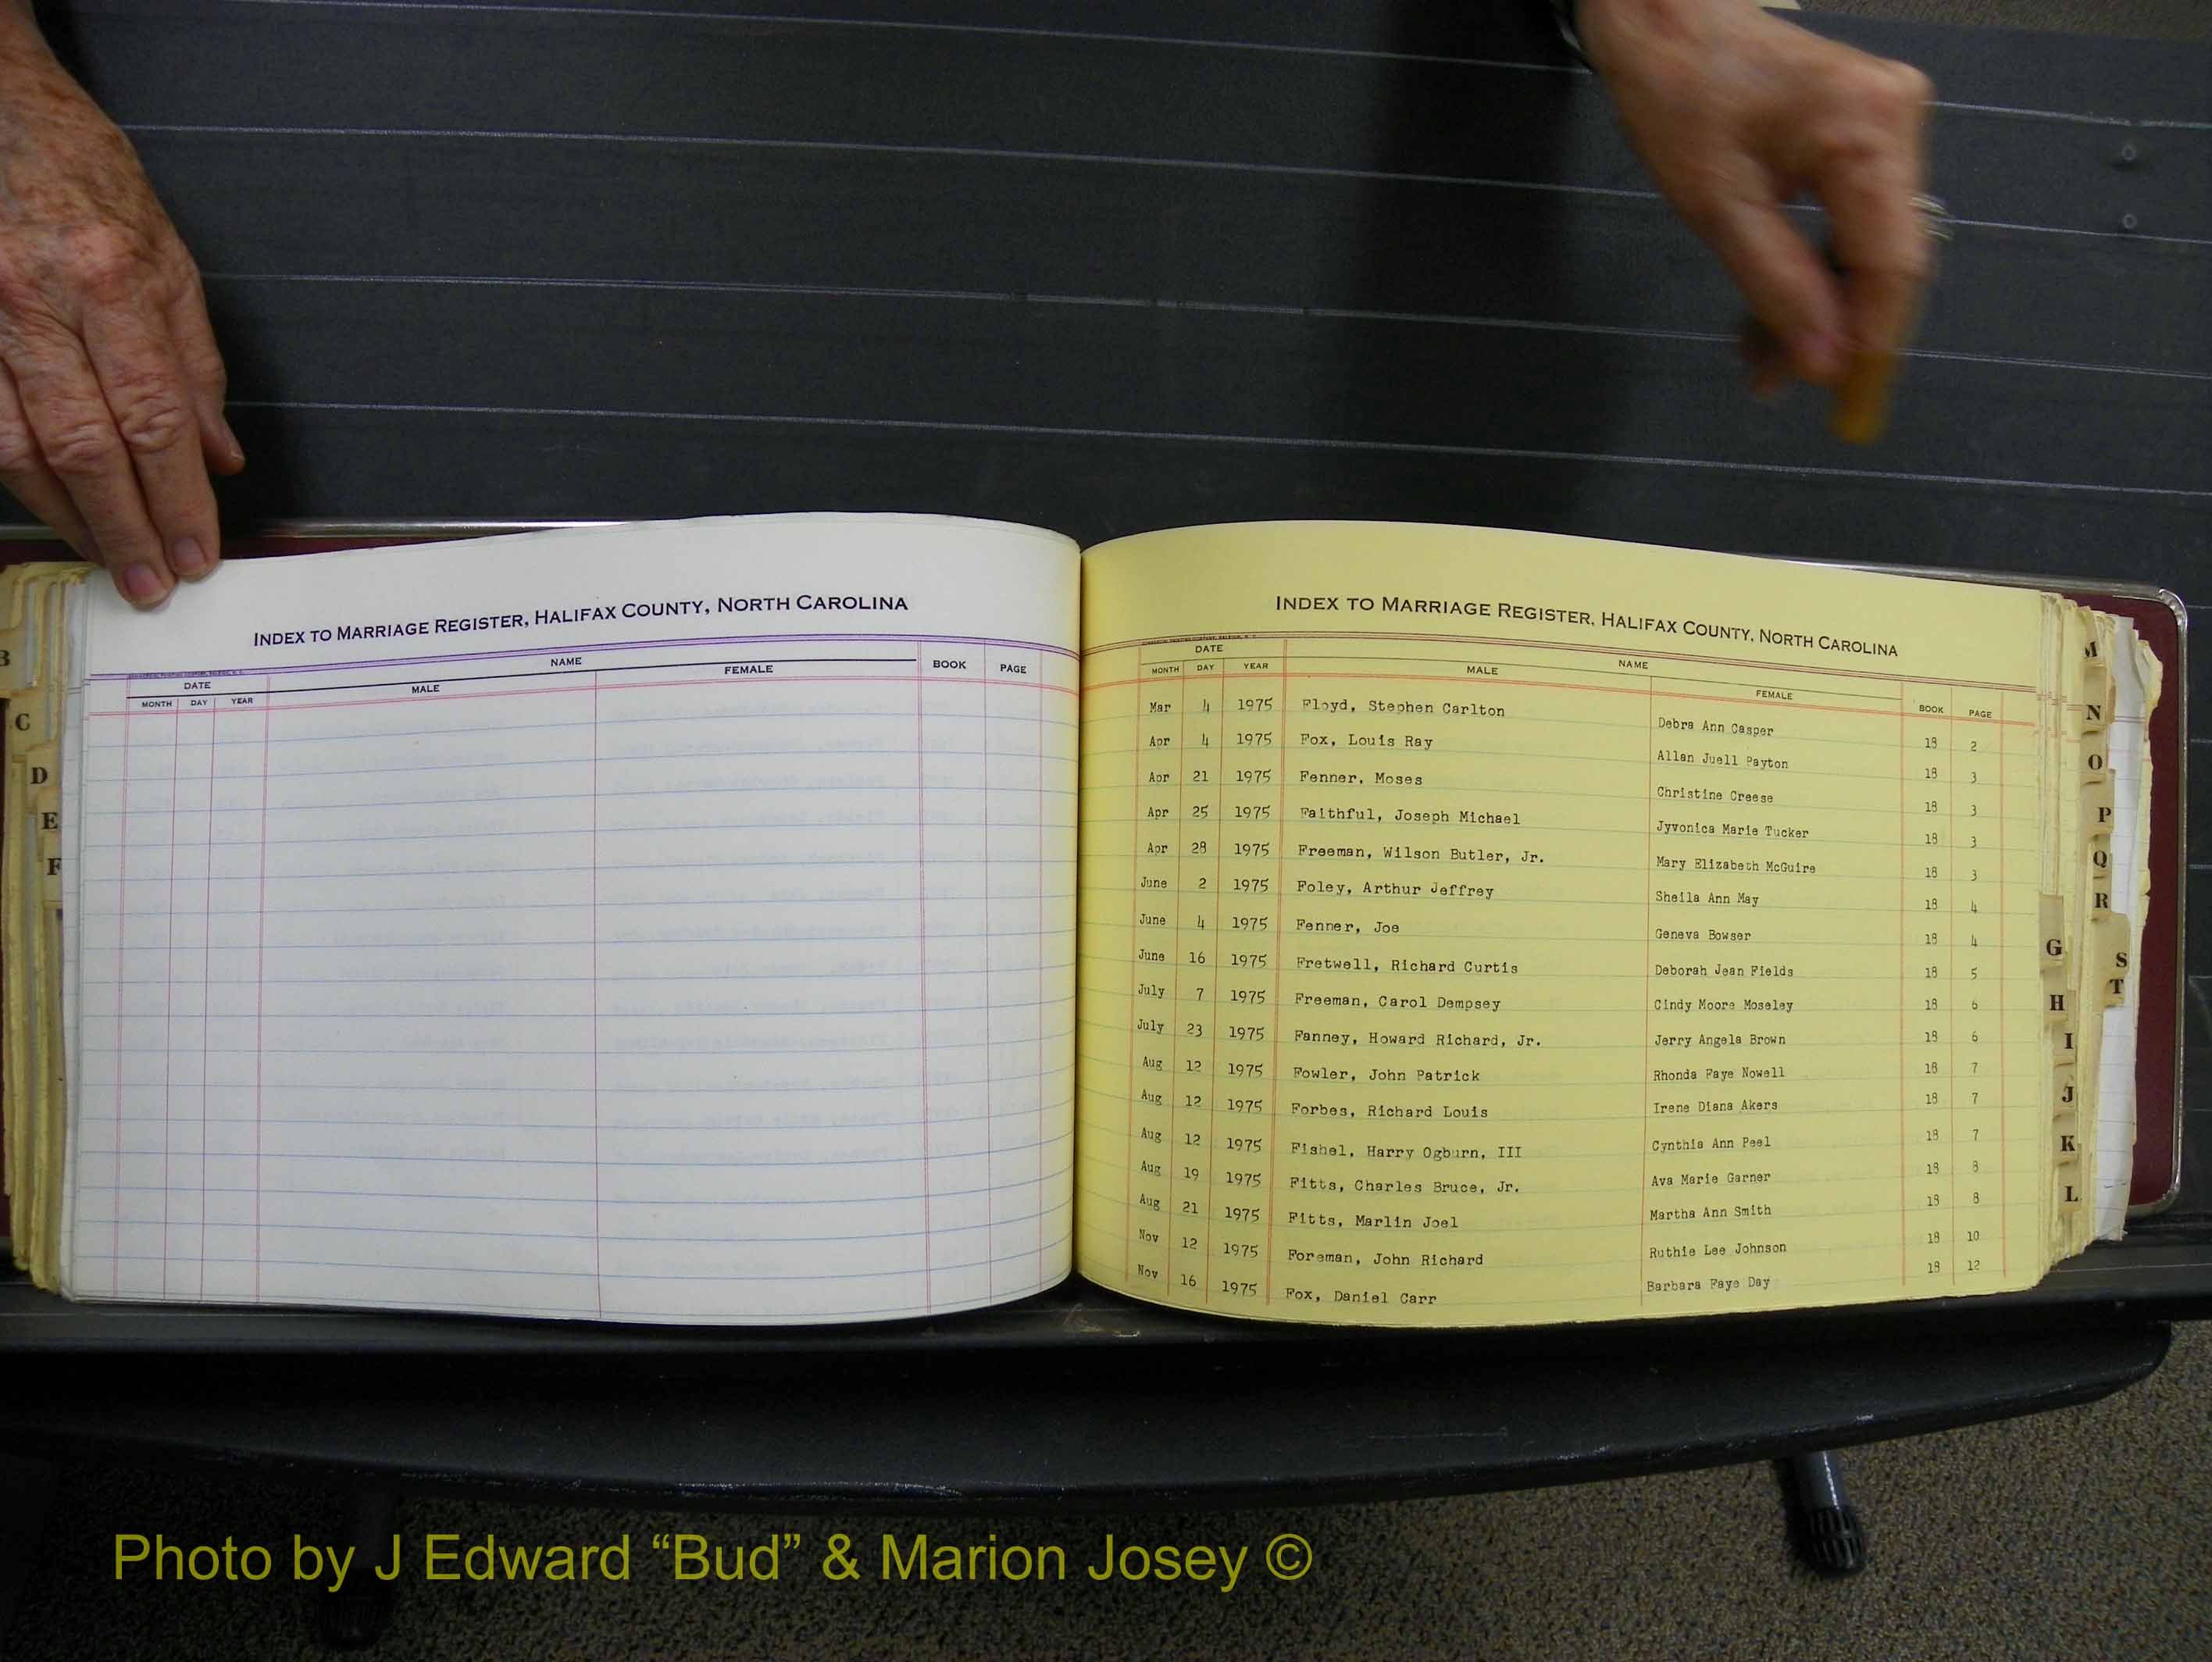 INDEX TO MARRIAGE REGISTER, HALIFAX COUNTY, NORTH CAROLINA
DATE NAME BOOK PAGE
MONTH DAY YEAR MALE FEMALE
B
C
D
E
F
INDEX TO MARRIAGE REGISTER, HALIFAX COUNTY, NORTH CAROLINA
DATE NAME
MONTH DAY YEAR MALE FEMALE BOOK PAGE
Mar 4 1975 Floyd, Stephen Carlton Debra Ann Casper 18 2
Apr 4 1975 Fox, Louis Ray Allan Juell Payton 18 3
Apr 21 1975 Fenner, Moses Christine Creese 18 3
Apr 25 1975 Faithful, Joseph Michael Jyvonica Marie Tucker 18 3
Apr 28 1975 Freeman, Wilson Butler, Jr. Mary Elizabeth McGuire 18 3
June 2 1975 Foley, Arthur Jeffrey Sheila Ann May 18 4
June 4 1975 Fenner, Joe Geneva Bowser 18 4
June 16 1975 Fretwell, Richard Curtis Deborah Jean Fields 18 5
July 7 1975 Freeman, Carol Dempsey Cindy Moore Moseley 18 6
July 23 1975 Fanney, Howard Richard, Jr. Jerry Angela Brown 18 6
Aug 12 1975 Fowler, John Patrick Rhonda Faye Nowell 18 7
Aug 12 1975 Forbes, Richard Louis Irene Diana Akers 18 7
Aug 12 1975 Fishel, Harry Ogburn, III Cynthia Ann Peel 18 7
Aug 19 1975 Fitts, Charles Bruce, Jr. Ava Marie Garner 18 8
Aug 21 1975 Fitts, Marlin Joel Martha Ann Smith 18 8
Nov 12 1975 Foreman, John Richard Ruthie Lee Johnson 18 10
Nov 16 1975 Fox, Daniel Carr Barbara Faye Day 18 12
G
H
I
J
K
L
M
N
O
P
Q
R
S
T
Photo by J Edward “Bud” & Marion Josey ©